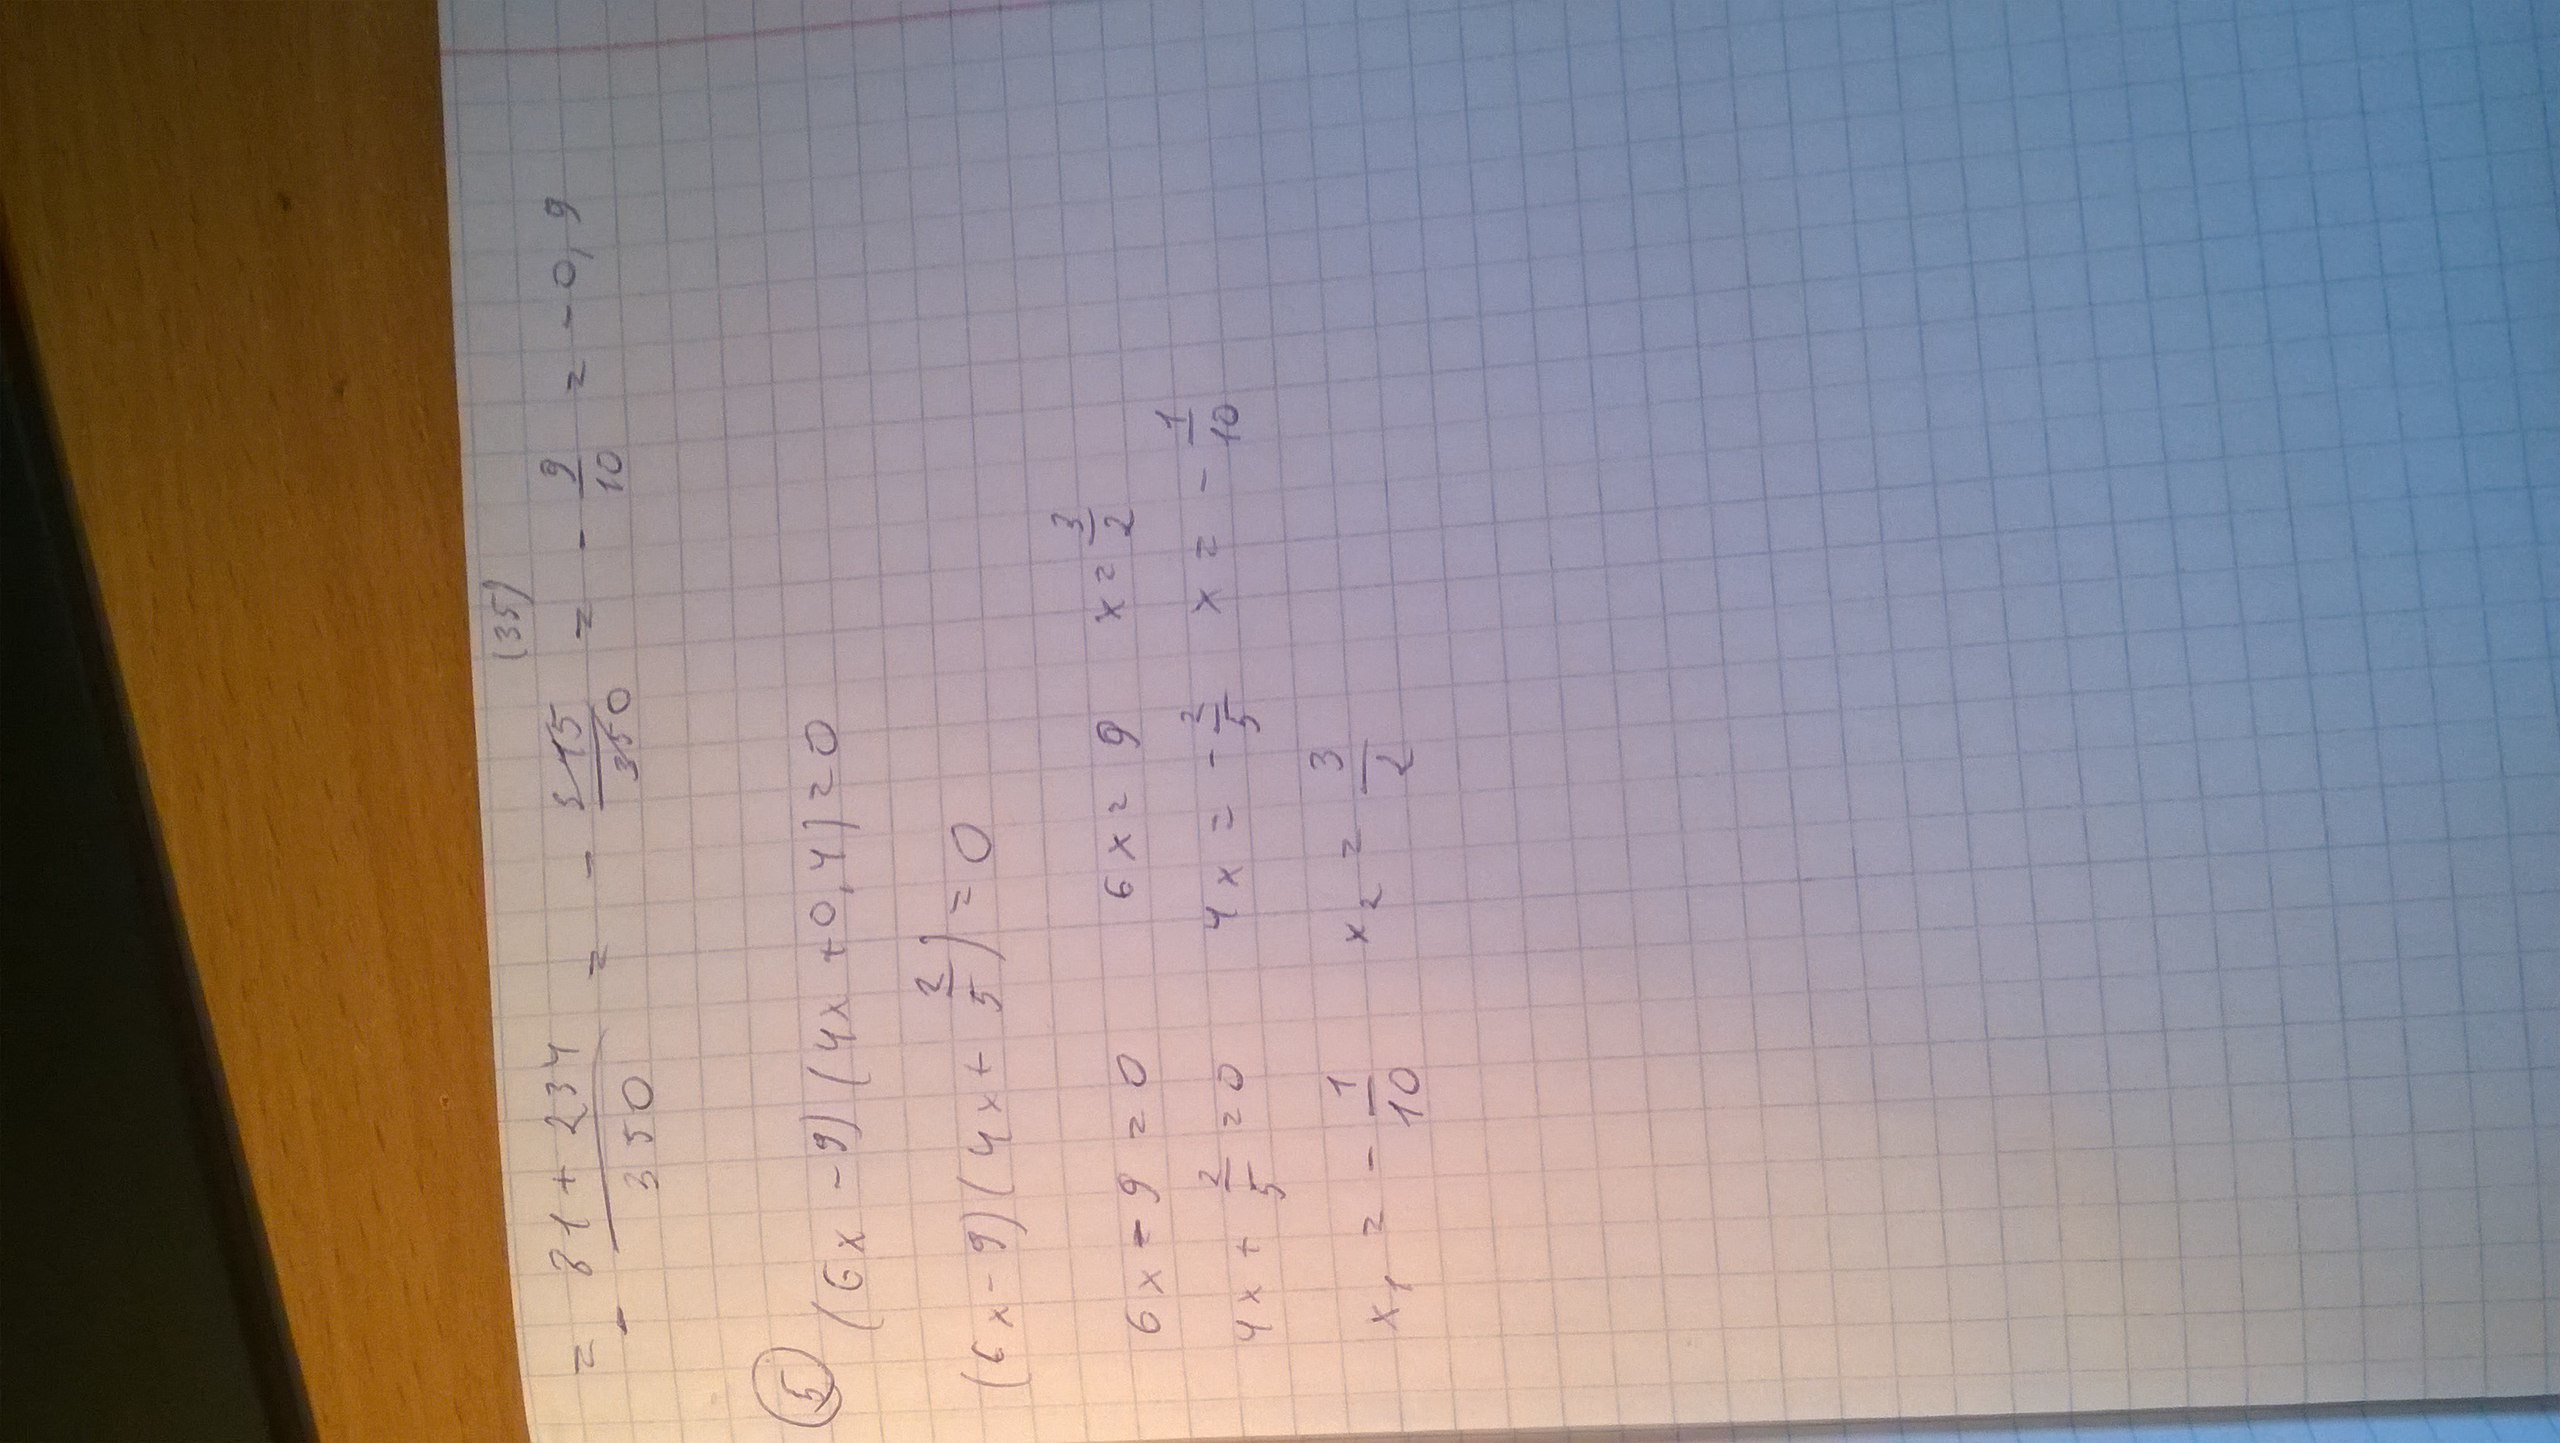 (35)
= - 81 + 234 / 350 = - 315 / 350 = - 9/10 = -0,9
(5) (6x - 9)(4x + 0,4) = 0
(6x - 9)(4x + 2/5) = 0
6x - 9 = 0 6x = 9 x = 3/2
4x + 2/5 = 0 4x = - 2/5 x = - 1/10
x₁ = - 1/10 x₂ = 3/2